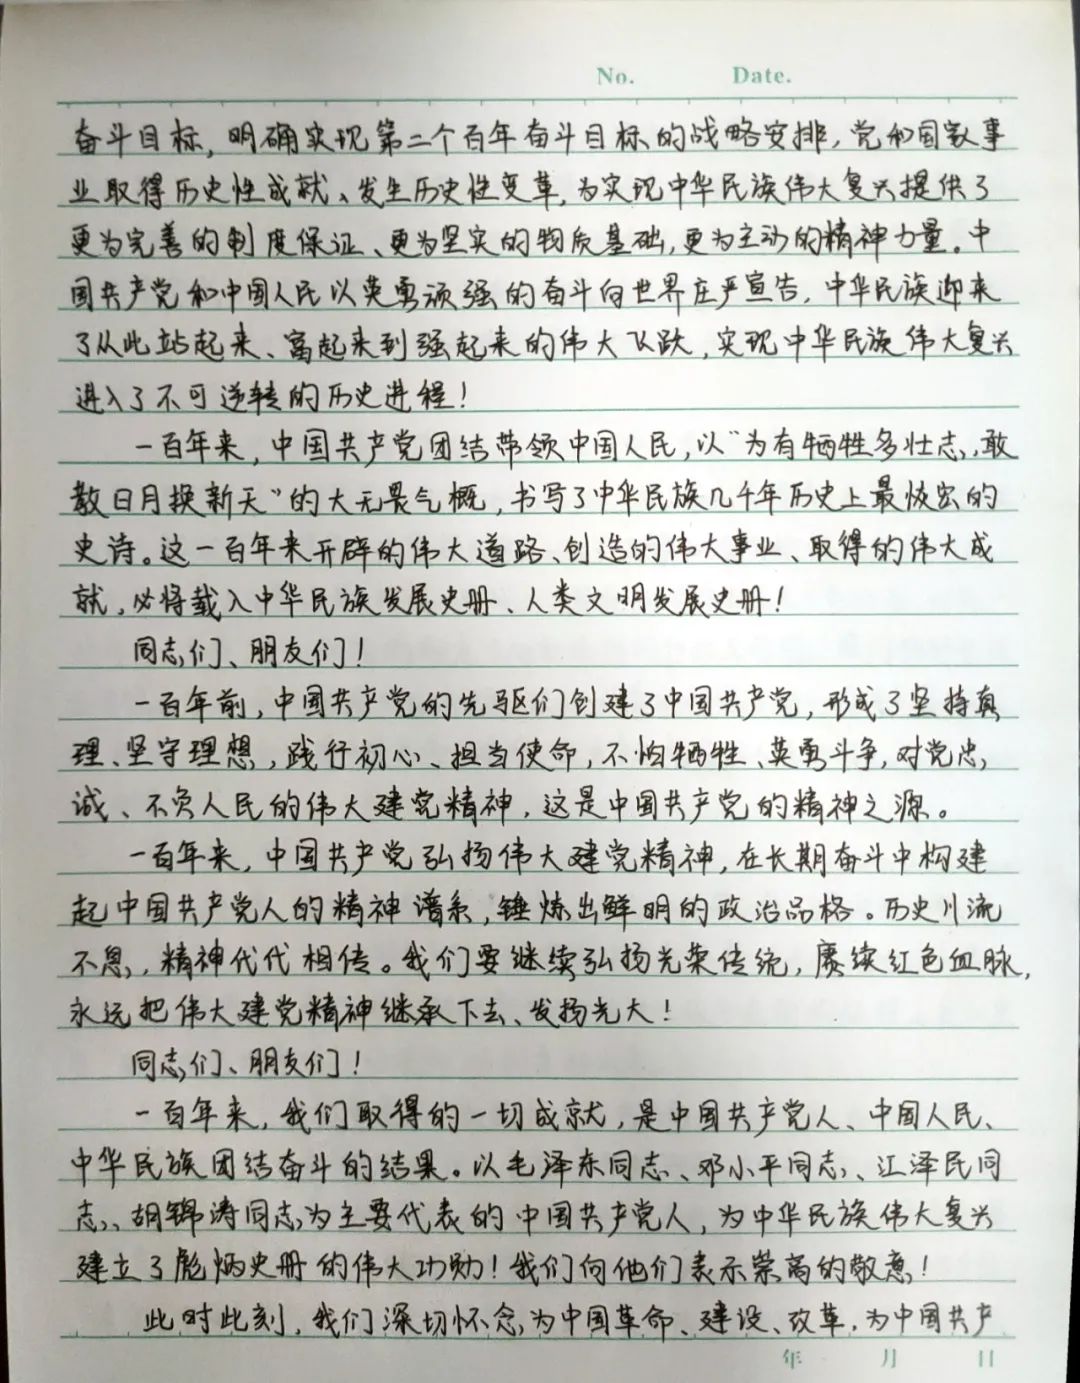 No. Date.
奋斗目标，明确实现第二个百年奋斗目标的战略安排，党和国家事
业取得历史性成就、发生历史性变革，为实现中华民族伟大复兴提供了
更为完善的制度保证、更为坚实的物质基础，更为主动的精神力量。中
国共产党和中国人民以英勇顽强的奋斗向世界庄严宣告，中华民族迎来
了从此站起来、富起来到强起来的伟大飞跃，实现中华民族伟大复兴
进入了不可逆转的历史进程！
一百年来，中国共产党团结带领中国人民，以“为有牺牲多壮志，敢
教日月换新天”的大无畏气概，书写了中华民族几千年历史上最恢宏的
史诗。这一百年来开辟的伟大道路、创造的伟大事业、取得的伟大成
就，必将载入中华民族发展史册、人类文明发展史册！
同志们、朋友们！
一百年前，中国共产党的先驱们创建了中国共产党，形成了坚持真
理、坚守理想，践行初心、担当使命，不怕牺牲、英勇斗争，对党忠
诚、不负人民的伟大建党精神，这是中国共产党的精神之源。
一百年来，中国共产党弘扬伟大建党精神，在长期奋斗中构建
起中国共产党人的精神谱系，锤炼出鲜明的政治品格。历史川流
不息，精神代代相传。我们要继续弘扬光荣传统，赓续红色血脉，
永远把伟大建党精神继承下去、发扬光大！
同志们、朋友们！
一百年来，我们取得的一切成就，是中国共产党人、中国人民、
中华民族团结奋斗的结果。以毛泽东同志、邓小平同志、江泽民同
志、胡锦涛同志为主要代表的中国共产党人，为中华民族伟大复兴
建立了彪炳史册的伟大功勋！我们向他们表示崇高的敬意！
此时此刻，我们深切怀念为中国革命、建设、改革，为中国共产
年 月 日